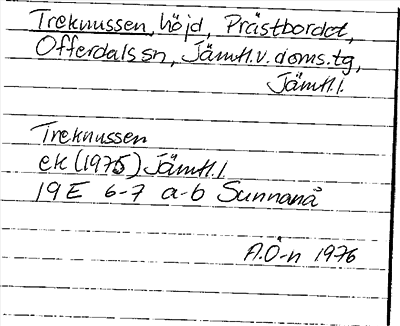 Treknussen, höjd, Prästbordet,
Offerdals sn, Jämtl.v.doms.tg,
Jämtl.l.
Treknussen
ek (1975) Jämtl.l
19E 6-7 a-b Sunnanå
A.Ö-n 1976